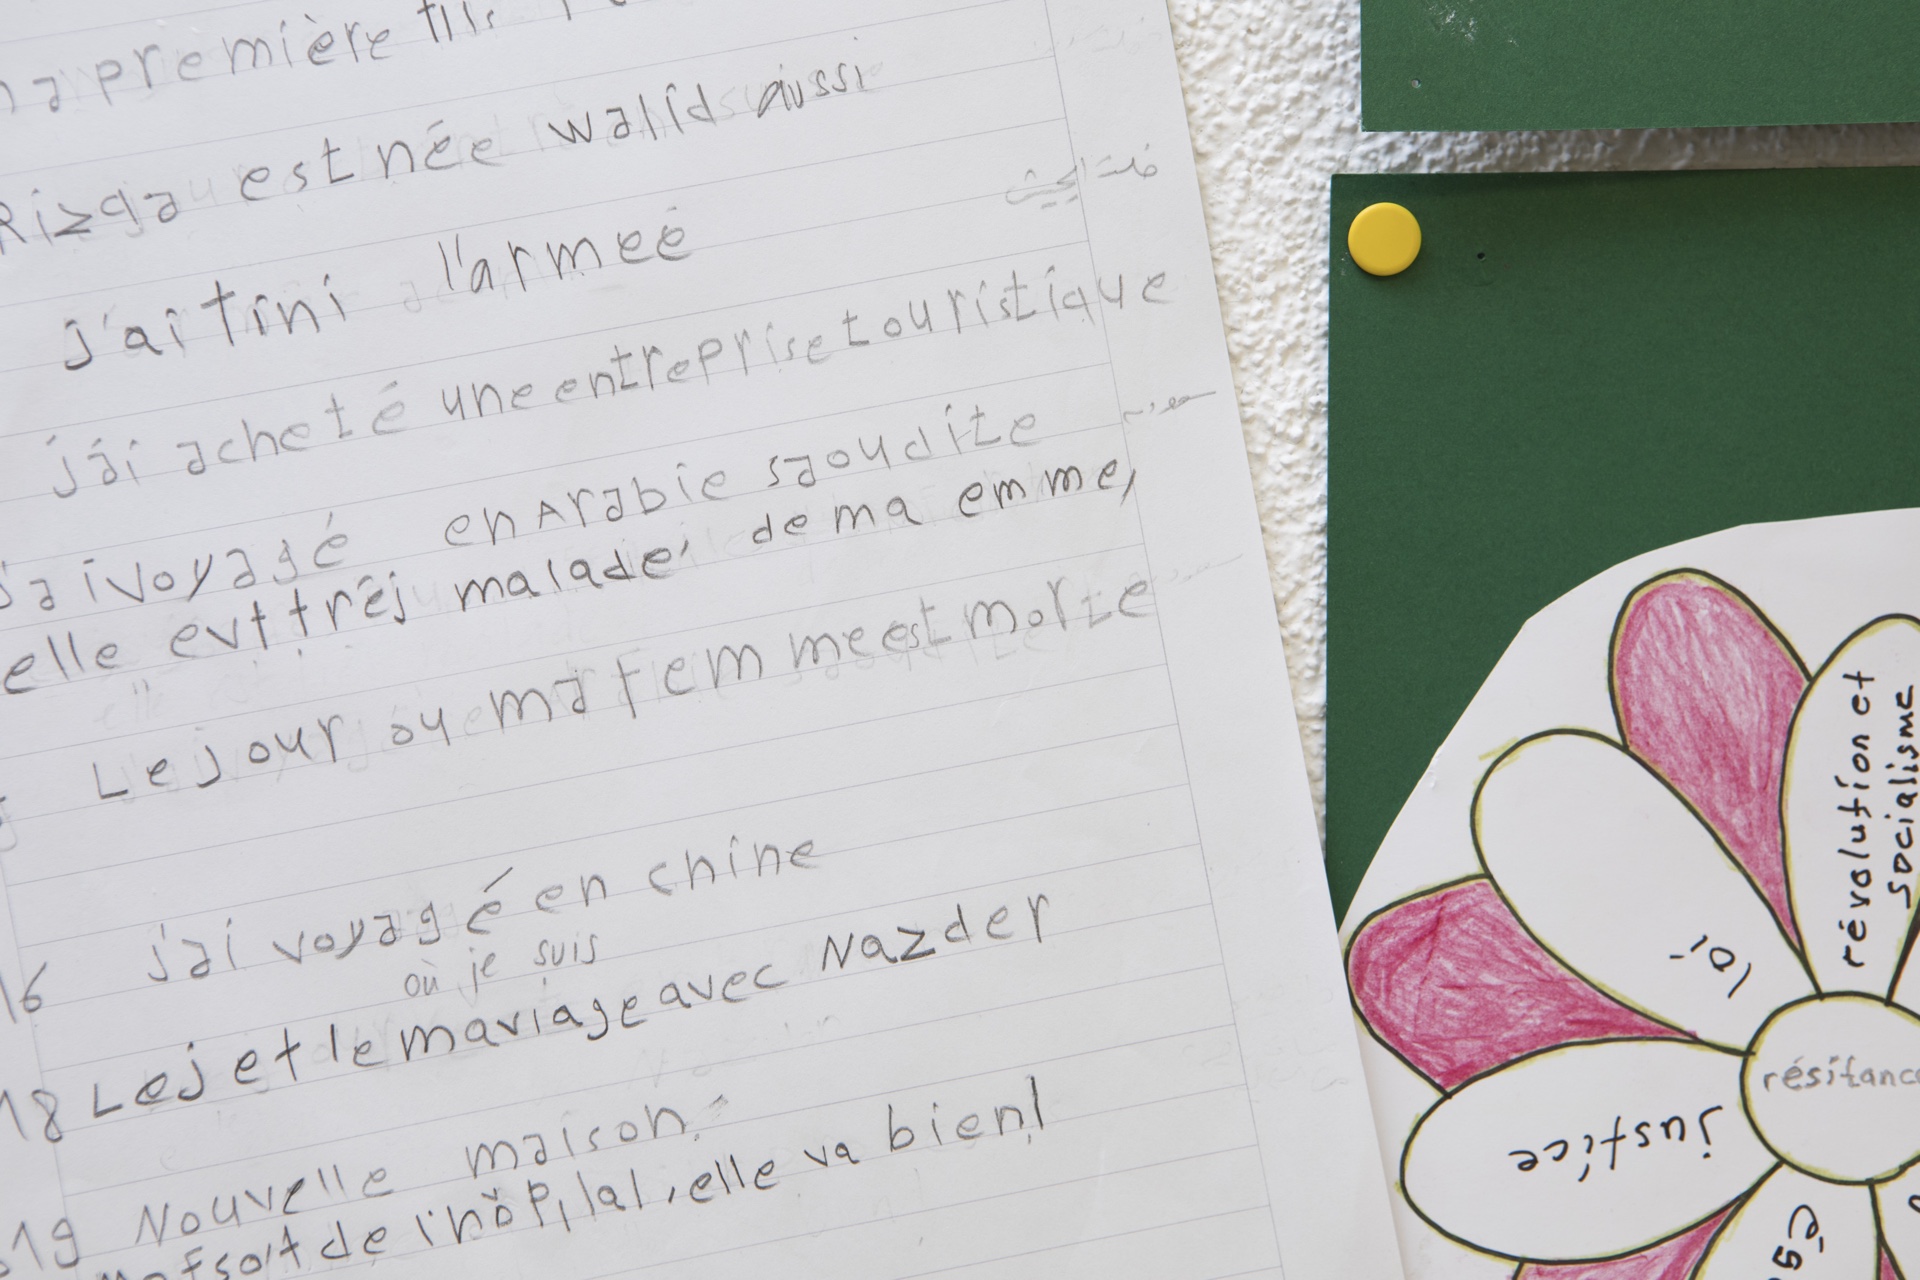 a première
Rizga est née walid aussi
j'ai fini l'armeé
j'ai acheté une entreprise touristique
j'ai voyagé en Arabie saoudite
elle evt tréj malade, de ma emme,
Le jour ou ma femme est morte
16 j'ai voyagé en chine
où je suis
18 Lej et le maviage avec Nazder
19 Nouvelle maison.
de l'hôpilal, elle va bien!
révolution et
socialisme
loi
résitance
justice
ég